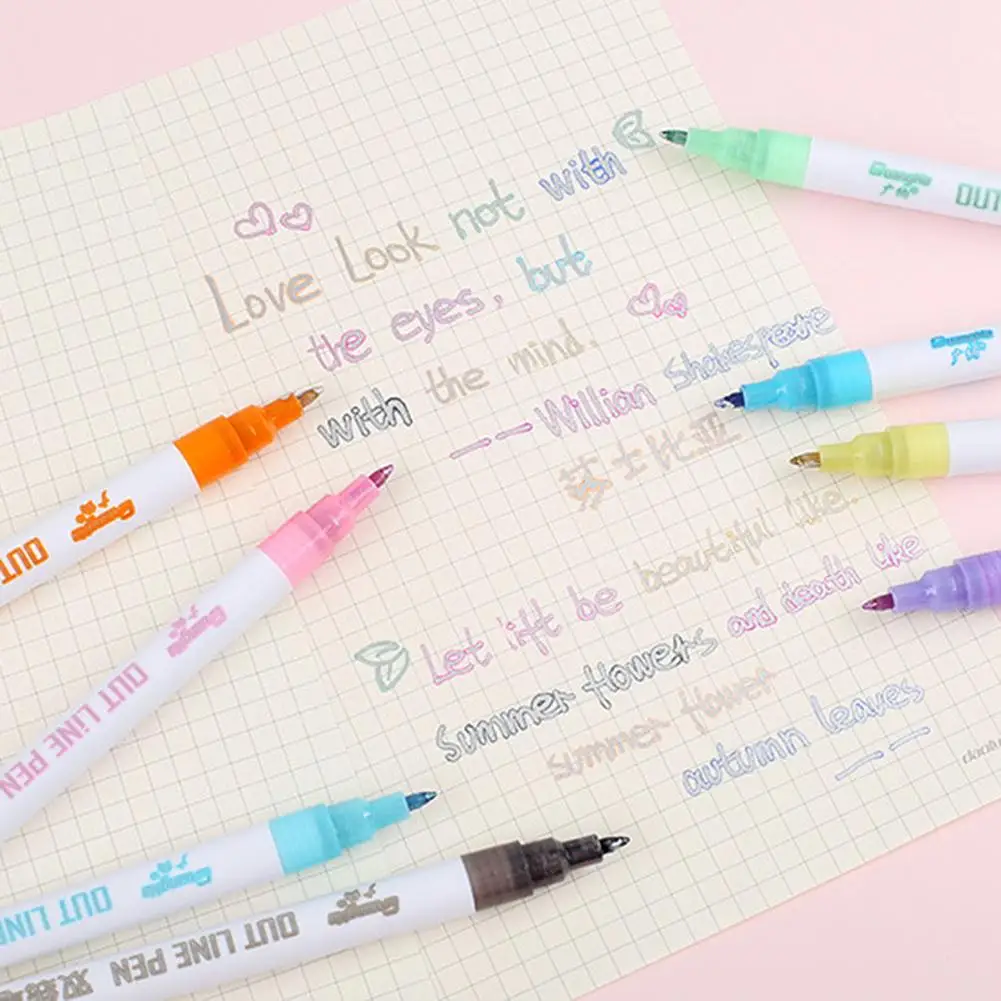 Love Look not with
the eyes, but
with the mind.
—— Willian Shakespeare
莎士比亚
Let lift be beautiful like.
summer flowers and death like
summer flower
autumn leaves ——
OUT
OUT
OUT LINE PEN
OUT LIN
OUT LINE PEN 双